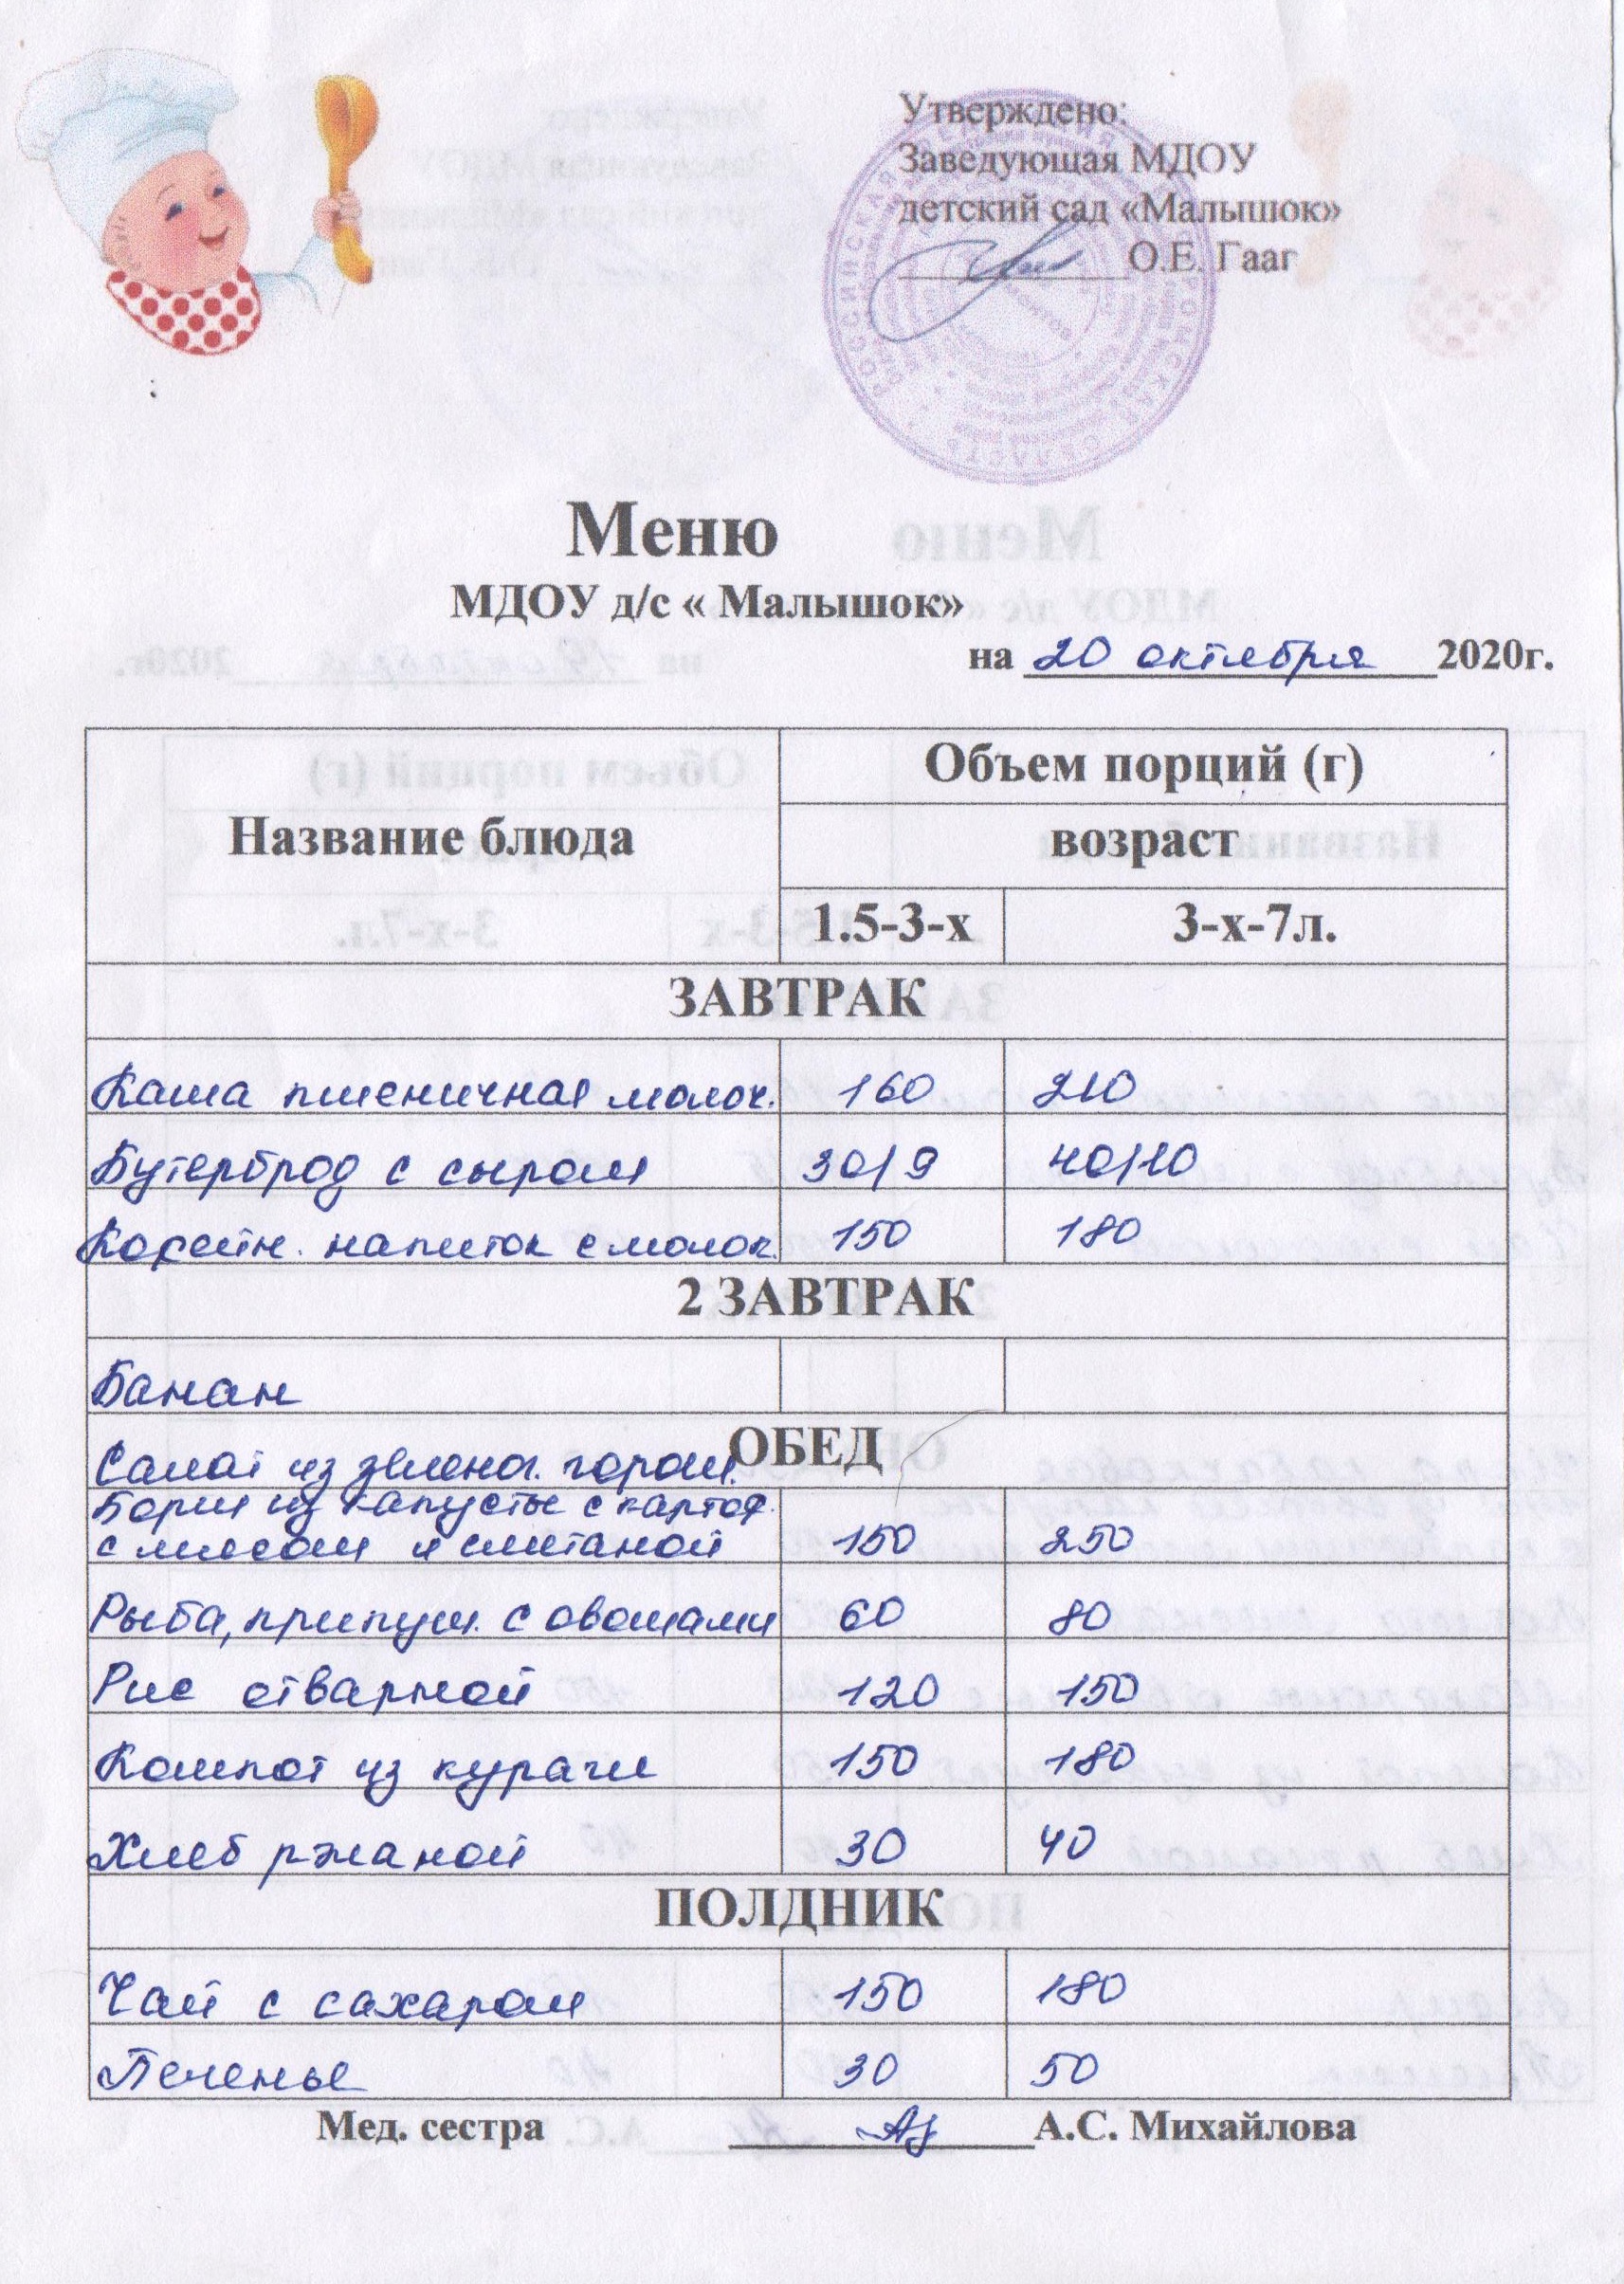 Утверждено:
Заведующая МДОУ
детский сад «Малышок»
О.Е. Гааг
Меню
МДОУ д/с « Малышок»
на 20 октября 2020г.
Название блюда
Объем порций (г)
возраст
1.5-3-х 3-х-7л.
ЗАВТРАК
Каша пшеничная молоч. 160 210
Бутерброд с сыром 30/9 40/10
Кофейн. напиток с молок. 150 180
2 ЗАВТРАК
Банан
ОБЕД
Салат из зелено. горош.
Борщ из капусты с картоф.
с мясом и сметаной 150 250
Рыба, припущ. с овощами 60 80
Рис отварной 120 150
Компот из кураги 150 180
Хлеб ржаной 30 40
ПОЛДНИК
Чай с сахаром 150 180
Печенье 30 50
Мед. сестра А.С. Михайлова